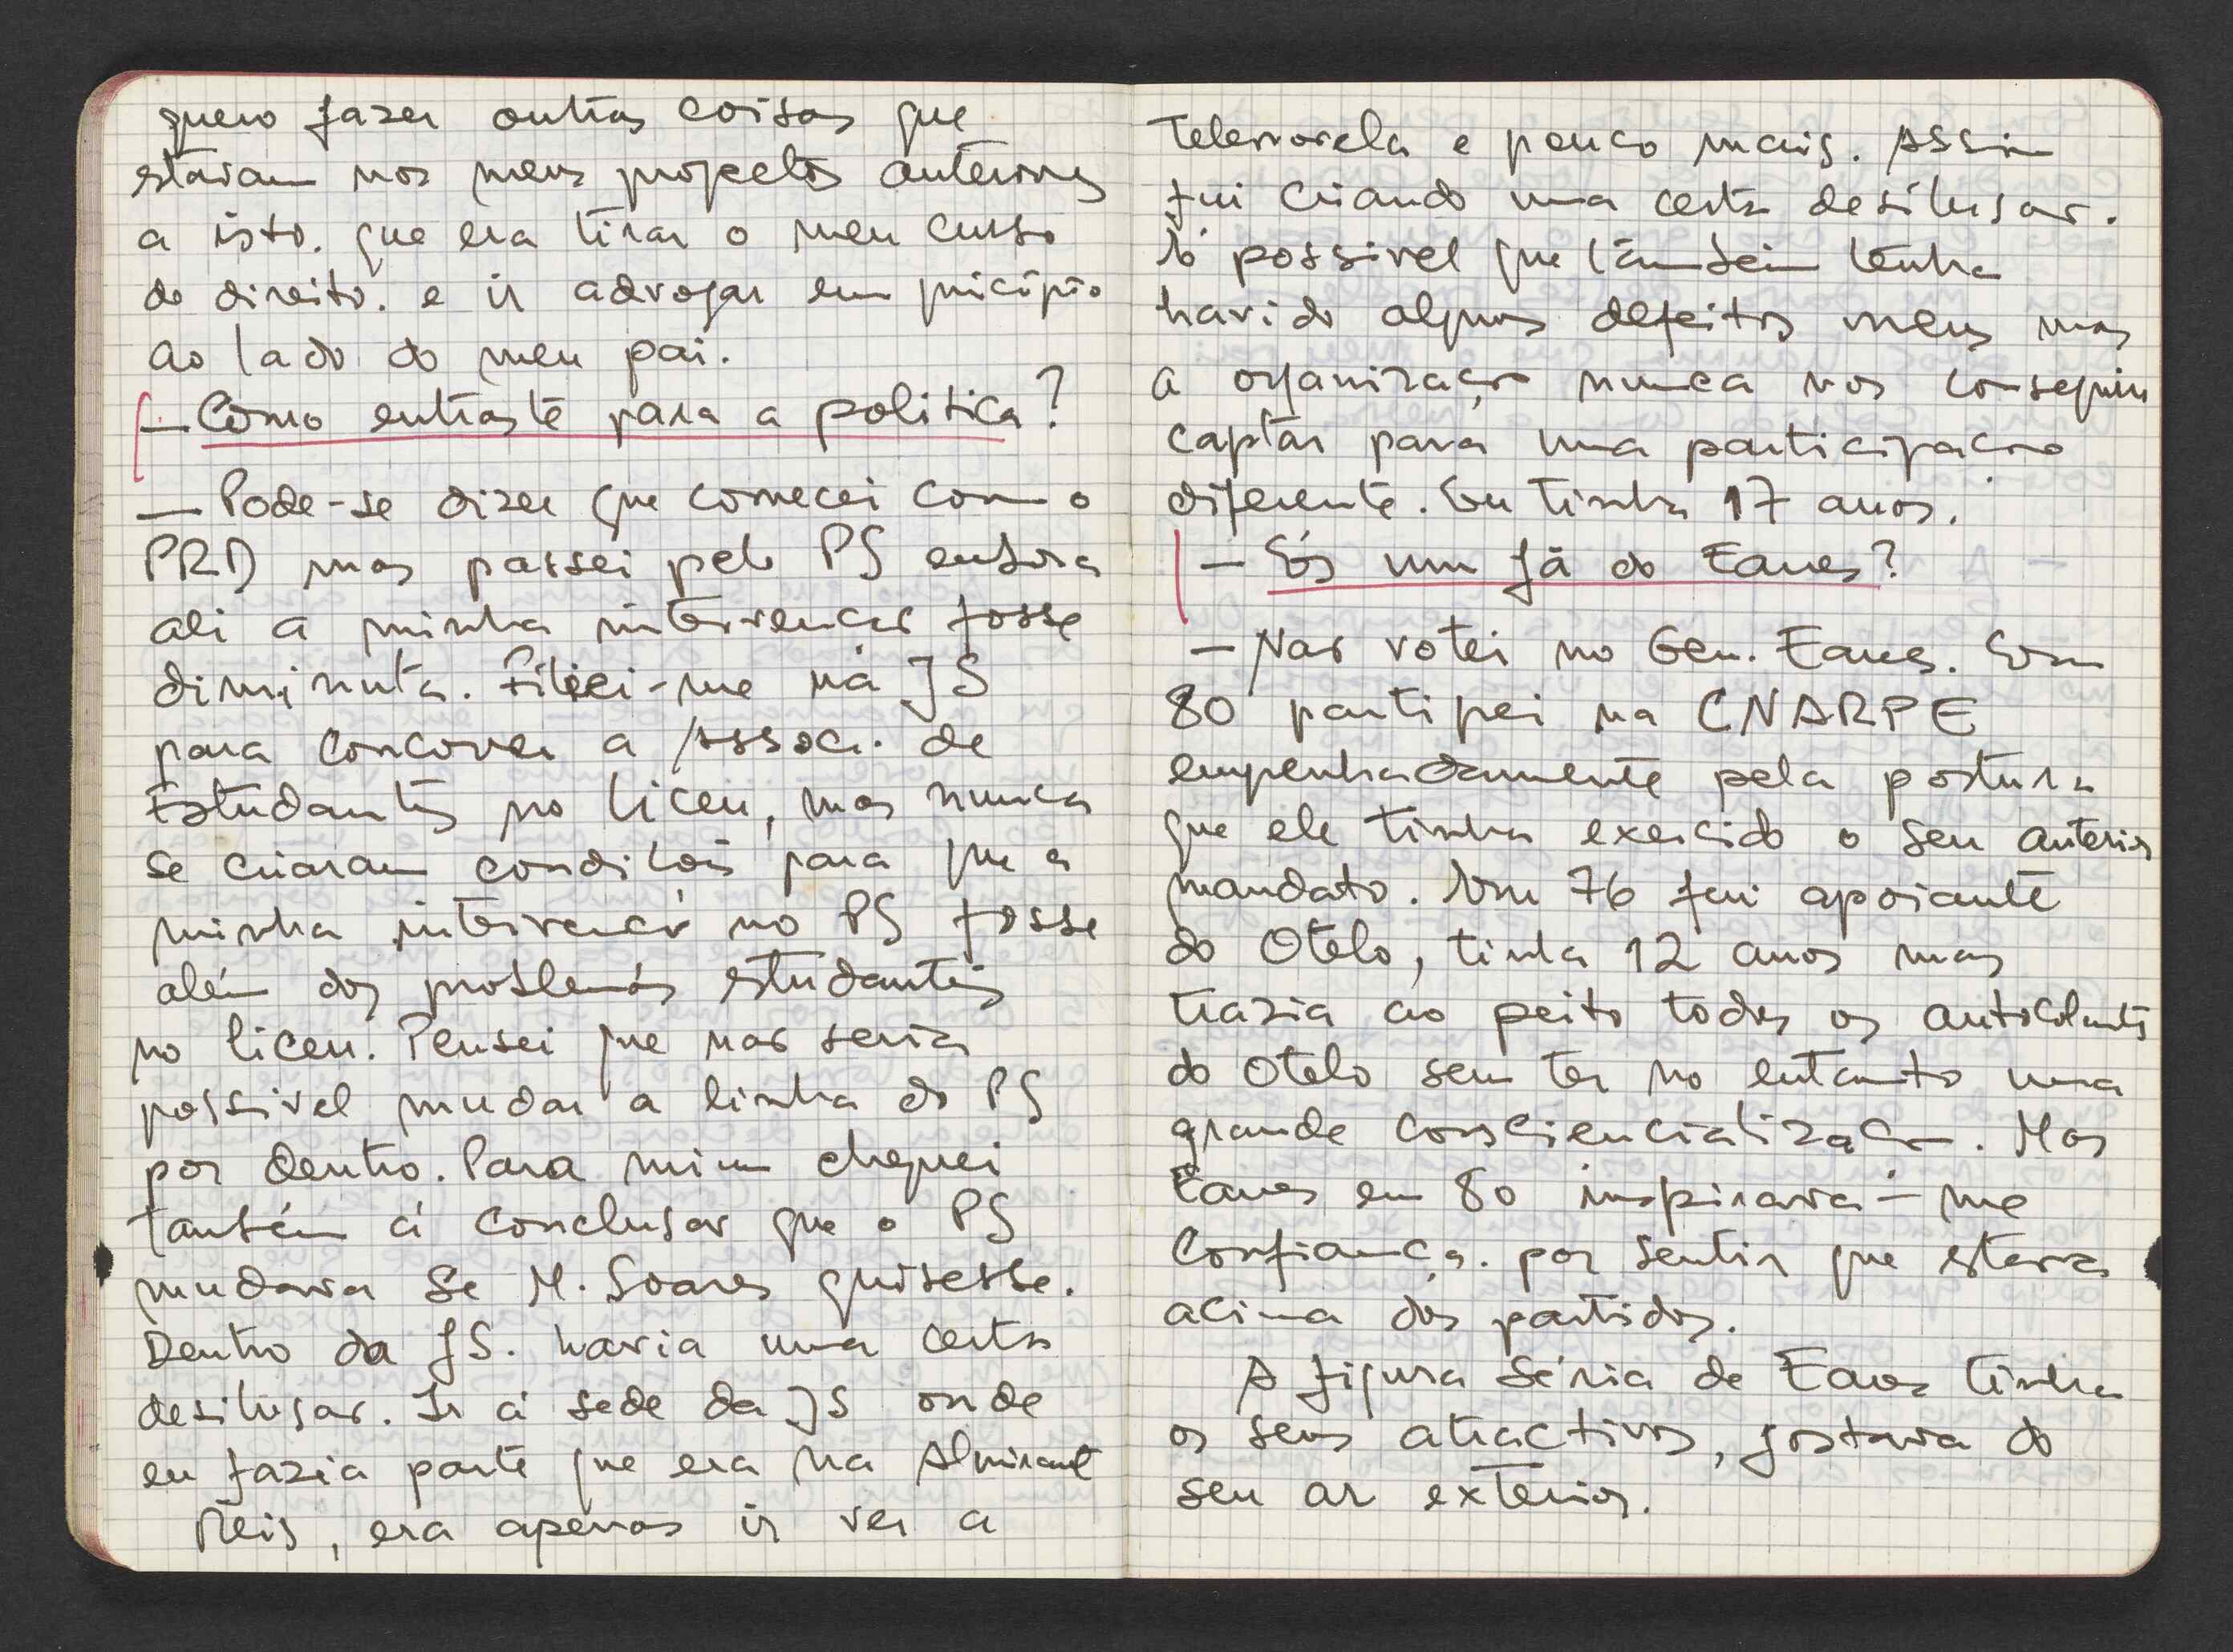 quero fazer outras coisas que
estavam nos meus projectos anteriores
a isto. que era tirar o meu curso
de direito. e ir advogar em pricípio
ao lado do meu pai.
— Como entraste para a politica?
— Pode-se dizer que comecei com o
PRD mas passei pelo PS embora
ali a minha intervenção fosse
diminuta. Filiei-me na JS
para concorrer a Associ. de
Estudantes no liceu, mas nunca
se criaram condições para que a
minha intervenção no PS fosse
além dos problemas estudantis
no liceu. Pensei que não seria
possivel mudar a linha do PS
por dentro. Para mim cheguei
também á conclusão que o PS
mudava se M. Soares quisesse.
Dentro da JS. havia uma certa
desilusão. Ir á sede da JS onde
eu fazia parte que era na Almirante
Reis, era apenas ir ver a
Telenovela e pouco mais. Assim
fui criando uma certa desilusão.
É possivel que também tenha
havido alguns defeitos meus mas
a organização nunca nos conseguiu
captar para uma participação
diferente. Eu tinha 17 anos.
— És um fã do Eanes?
— Não votei no Gen. Eanes. Em
80 partipei na CNARPE
empenhadamente pela postura
que ele tinha exercido o seu anterior
mandato. Em 76 fui apoiante
do Otelo, tinha 12 anos mas
trazia ao peito todos os autocolantes
do Otelo sem ter no entanto uma
grande consciencialização. Mas
Eanes em 80 inspirava-me
Confiança. por sentir que estava
acima dos partidos.
A figura séria de Eanes tinha
os seus atractivos, gostava do
seu ar exterior.